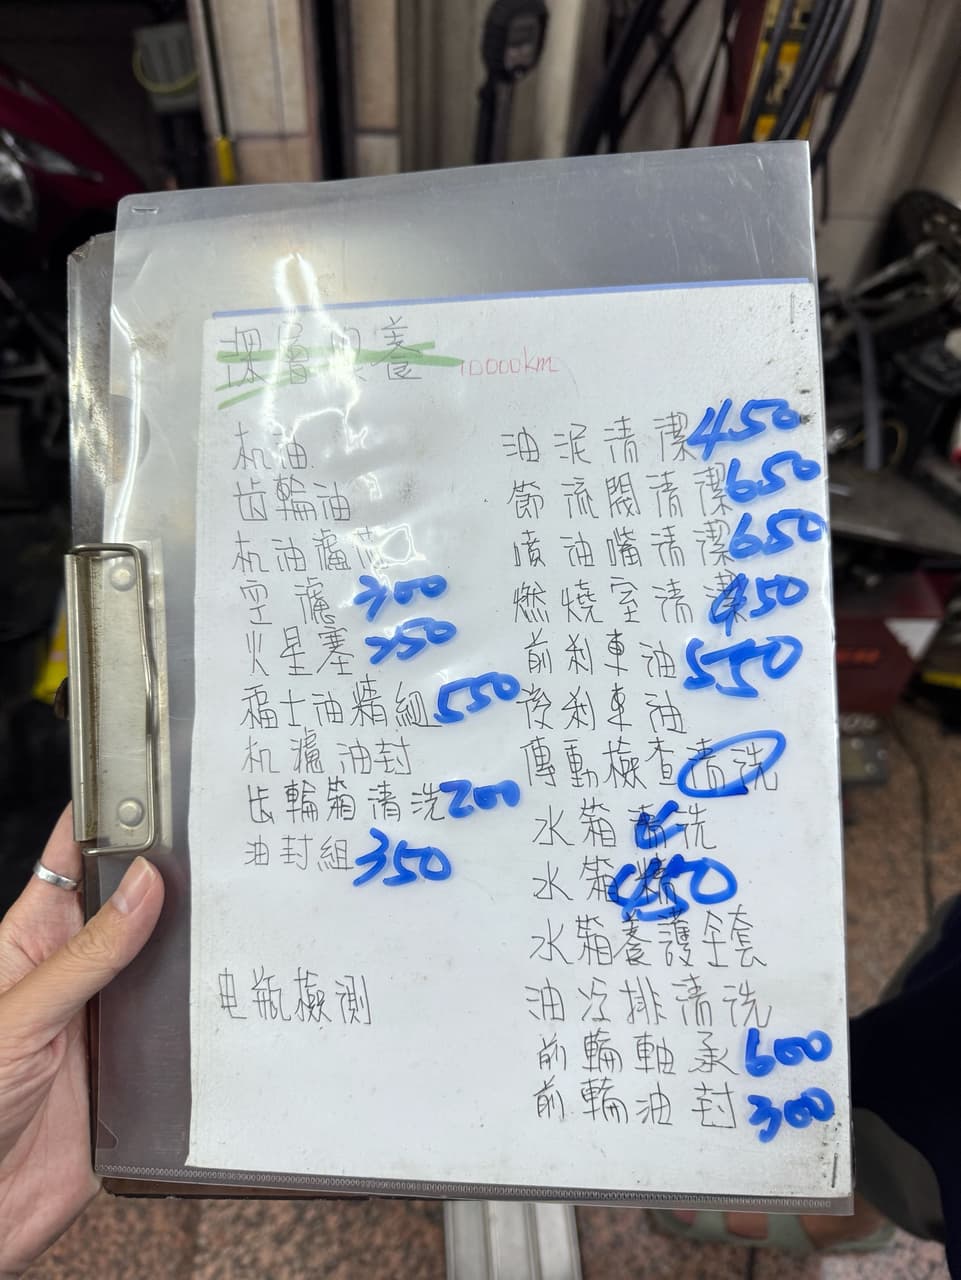 保養
10000km
机油
齿輪油
机油濾芯
空濾 300
火星塞 350
福士油精組 550
机濾油封
齿輪箱清洗 200
油封組 350
电瓶檢測
油泥清潔 450
節流閥清潔 650
噴油嘴清潔 650
燃燒室清潔 450
前刹車油 550
後刹車油
傳動檢查清洗
水箱清洗
水箱精 650
水箱養護全套
油冷排清洗
前輪軸承 600
前輪油封 300